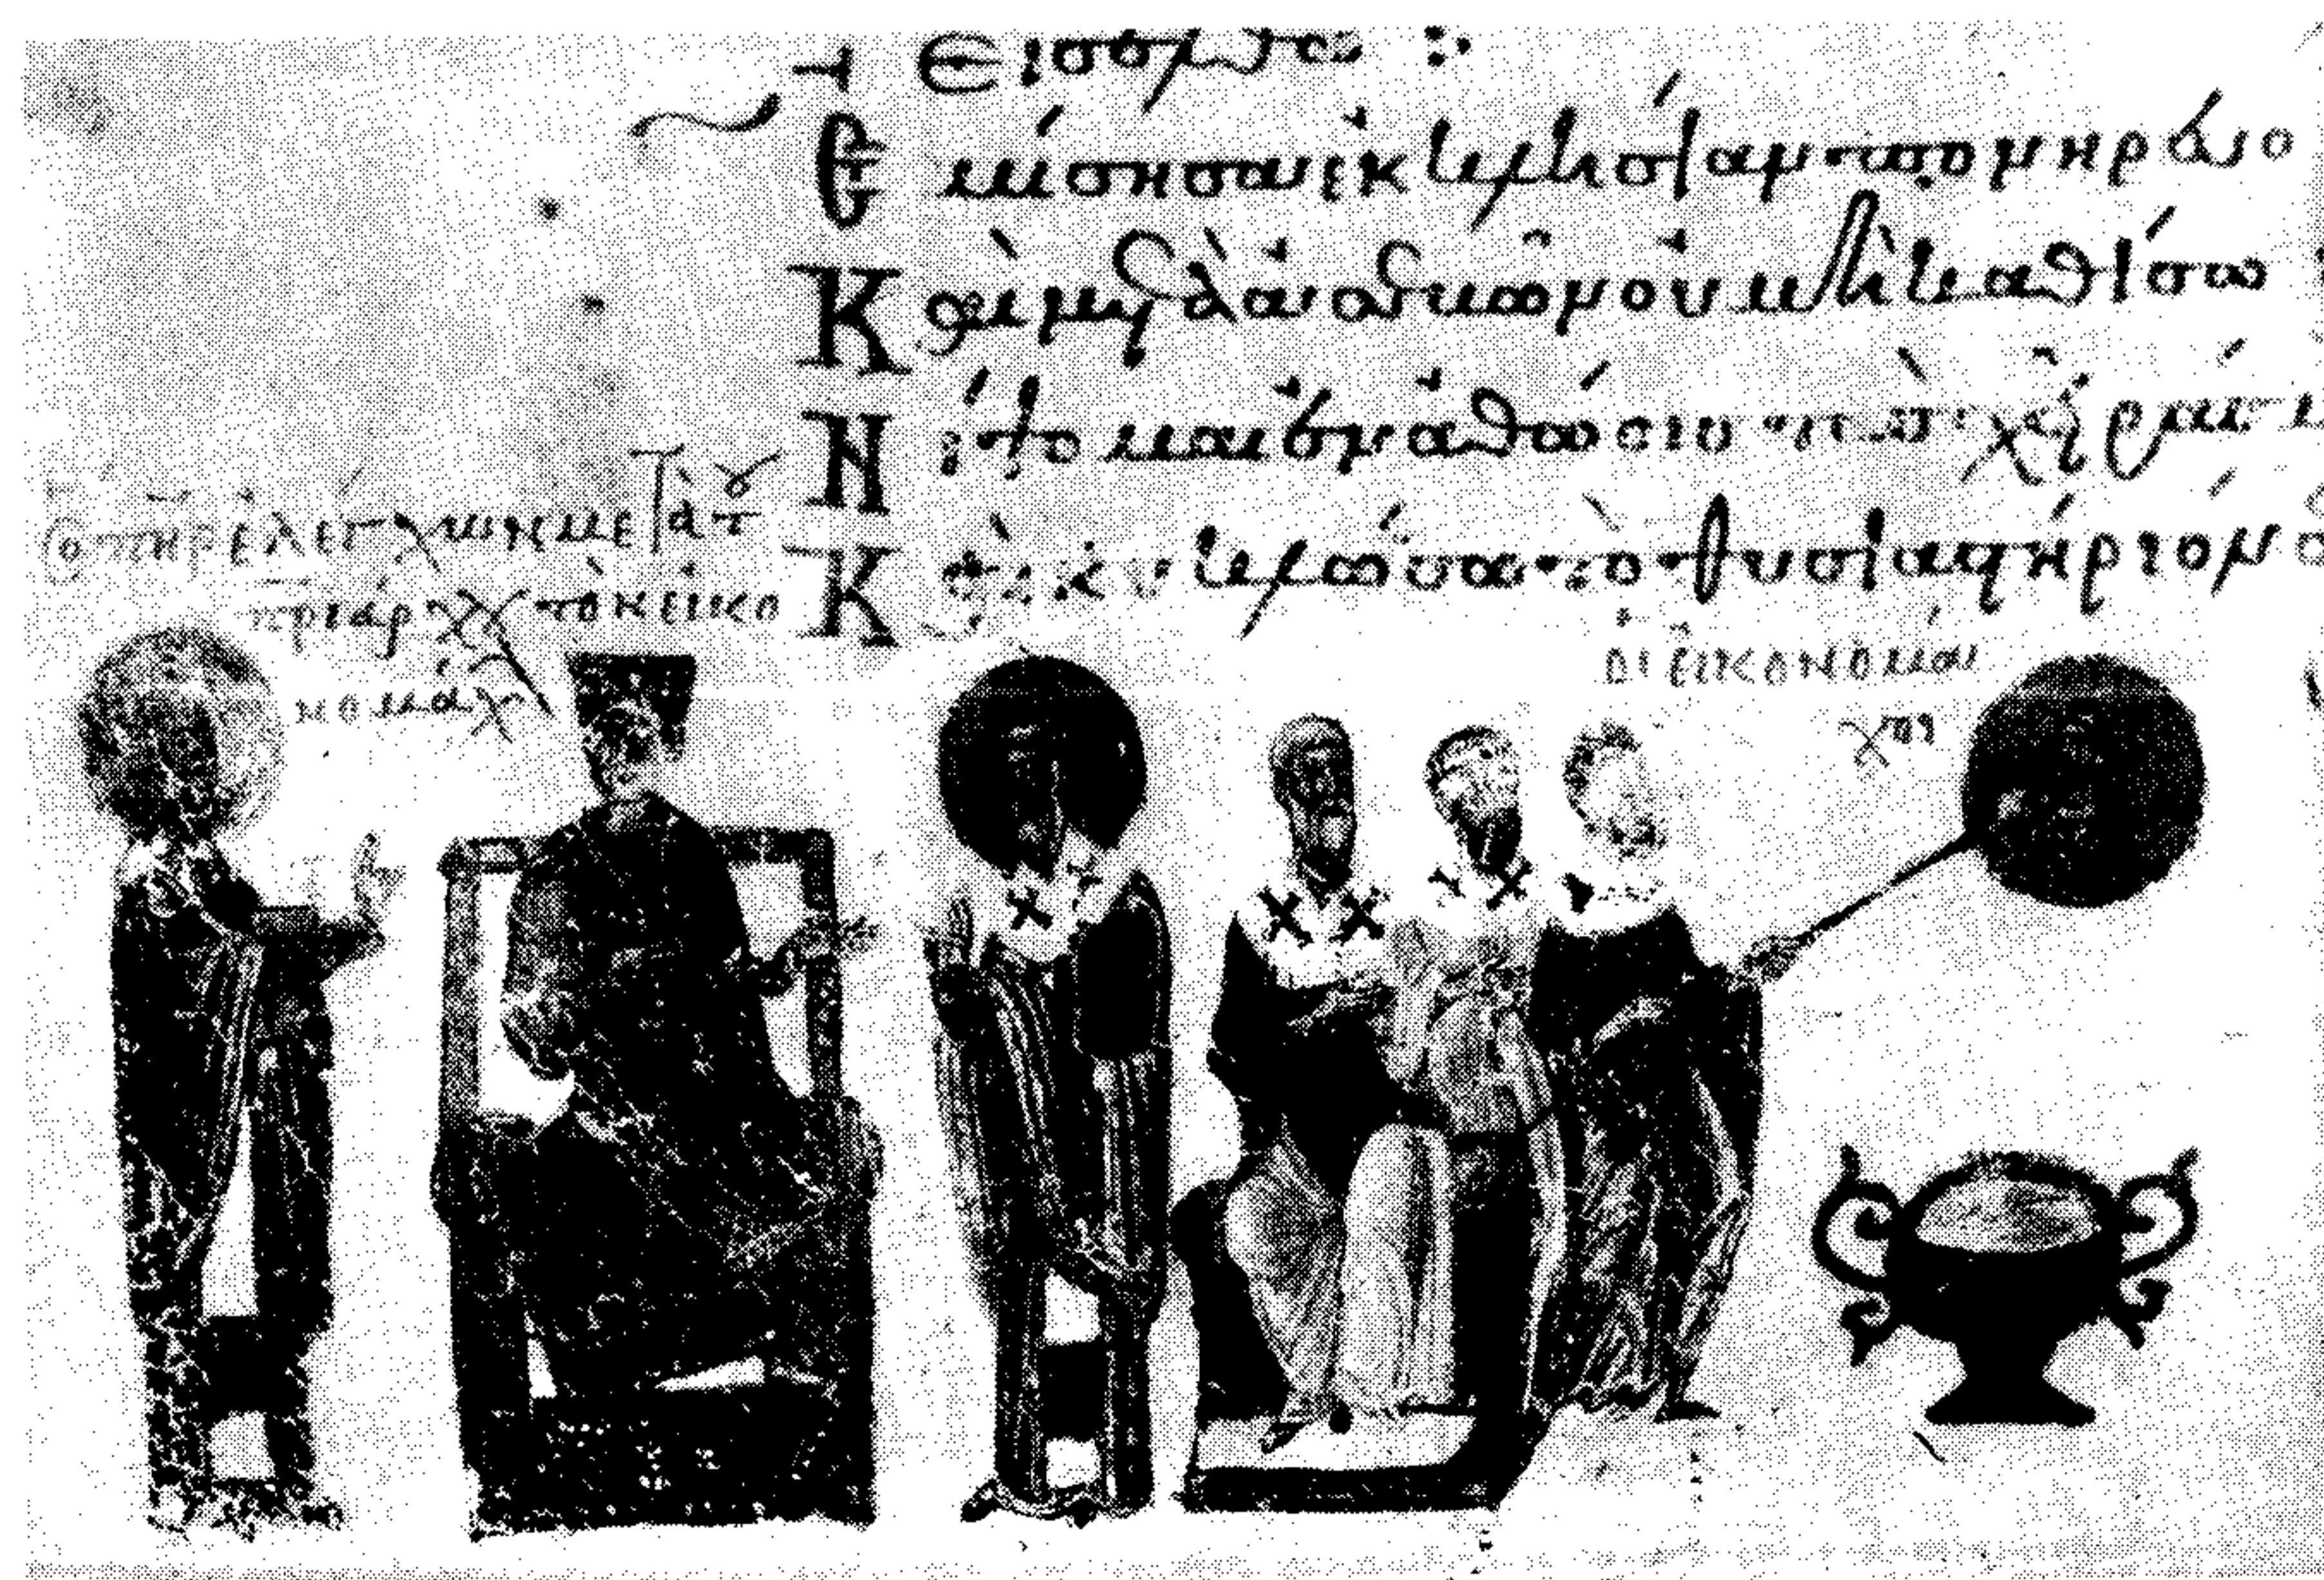 εἰσέλθω :·
Ἐμίσησα ἐκκλησίαν πονηρευο
Καὶ μετὰ ἀσεβῶν οὐ μὴ καθίσω
Νίψομαι ἐν ἀθώοις τὰς χεῖράς
Καὶ κυκλώσω τὸ θυσιαστήριον
Ὁ πηρ ἐλέγχων μετὰ τοῦ
πριάρχ τὸν εἰκο
νομάχ
οἱ εἰκονομά
χοι